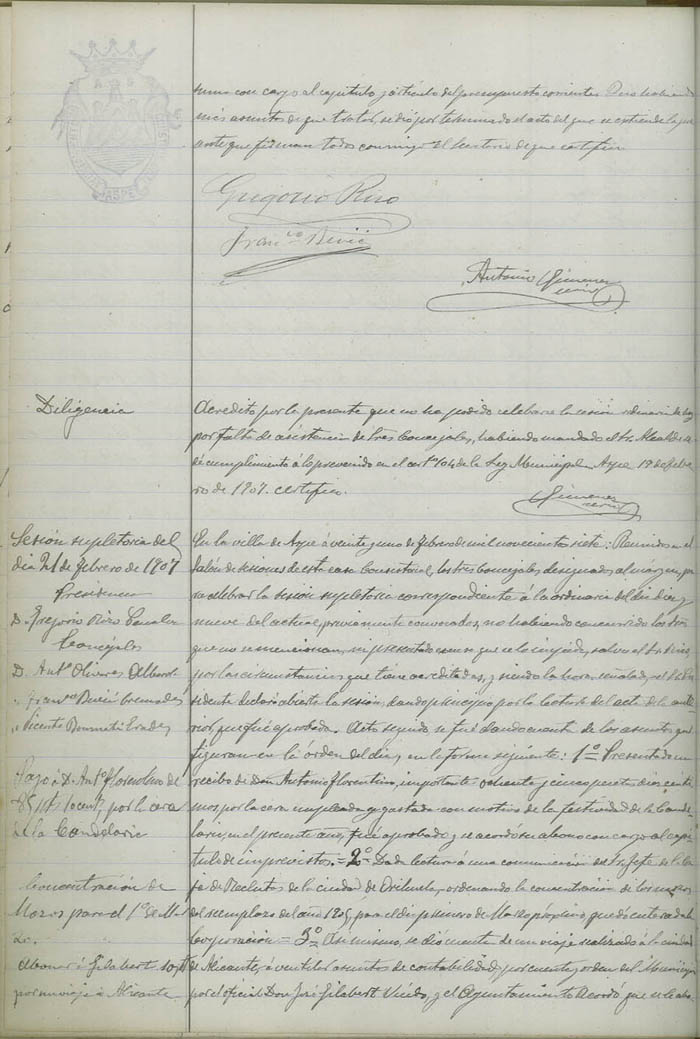 suma con cargo al capítulo y artículo del presupuesto corriente. Y no habiendo
más asuntos de que tratar, se dió por terminado el acto del que se extiende la pre-
ante que firman todos conmigo el Secretario de que certifico
Gregorio Rizo
Fran.co
Antonio Gimenez
Diligencia
Acredito por la presente que no ha podido celebrarse la sesión ordinaria de hoy
por falta de asistencia de tres Concejales, habiendo mandado el Sr. Alcalde se
dé cumplimiento á lo prevenido en el artº 104 de la Ley Municipal. Aspe 19 de Febre-
ro de 1907. Certifico.
Gimenez
Sesión supletoria del
dia 21 de febrero de 1907
Presidencia
D. Gregorio Rizo
Concejales
D. Antº Olivares
" Franco
" Vicente
Pago á D. Antº Florentino de
85 pts. 10 cents. por la cera
de la Candelaria
Concentración de
Mozos para el 1º de Mar
zo.
Abonar á Gilabert
por un viaje á Alicante
En la villa de Aspe á veinte y uno de febrero de mil novecientos siete: Reunidos en el
Salón de sesiones de esta casa Consistorial, los tres Concejales designados al margen, pa-
ra celebrar la sesión supletoria correspondiente á la ordinaria del dia diez y
nueve del actual, previamente convocados, no habiendo concurrido los
que no se mencionan, ni presentado excusa que se lo impida, salvo el
por las circunstancias que tiene acreditadas, y siendo la hora señalada, el Sr. Pre-
sidente declaró abierta la sesión, dando principio por la lectura del acta de la ante-
rior, que fué aprobada. Acto seguido, se fué dando cuenta de los asuntos que
figuran en la órden del dia, en la forma siguiente: 1º Presentado un
recibo de Don Antonio Florentino, importante ochenta y cinco pesetas diez cénti-
mos por la cera empleada y gastada con motivo de la festividad de la Cande-
laria en el presente año, fué aprobado y se acordó su abono con cargo al capí-
tulo de imprevistos. = 2º Dada lectura á una comunicación del Sr. Jefe de la Ca-
ja de Reclutas de la ciudad de Orihuela, ordenando la concentración de los mozos
del reemplazo del año 1905, para el dia primero de Marzo próximo, quedó enterada la
Corporación = 3º Asi mismo, se dió cuenta de un viaje realizado á la ciudad
de Alicante, á ventilar asuntos de contabilidad por cuenta y orden del Municipio
por el oficial Don José Gilabert, y el Ayuntamiento acordó que se le abo-